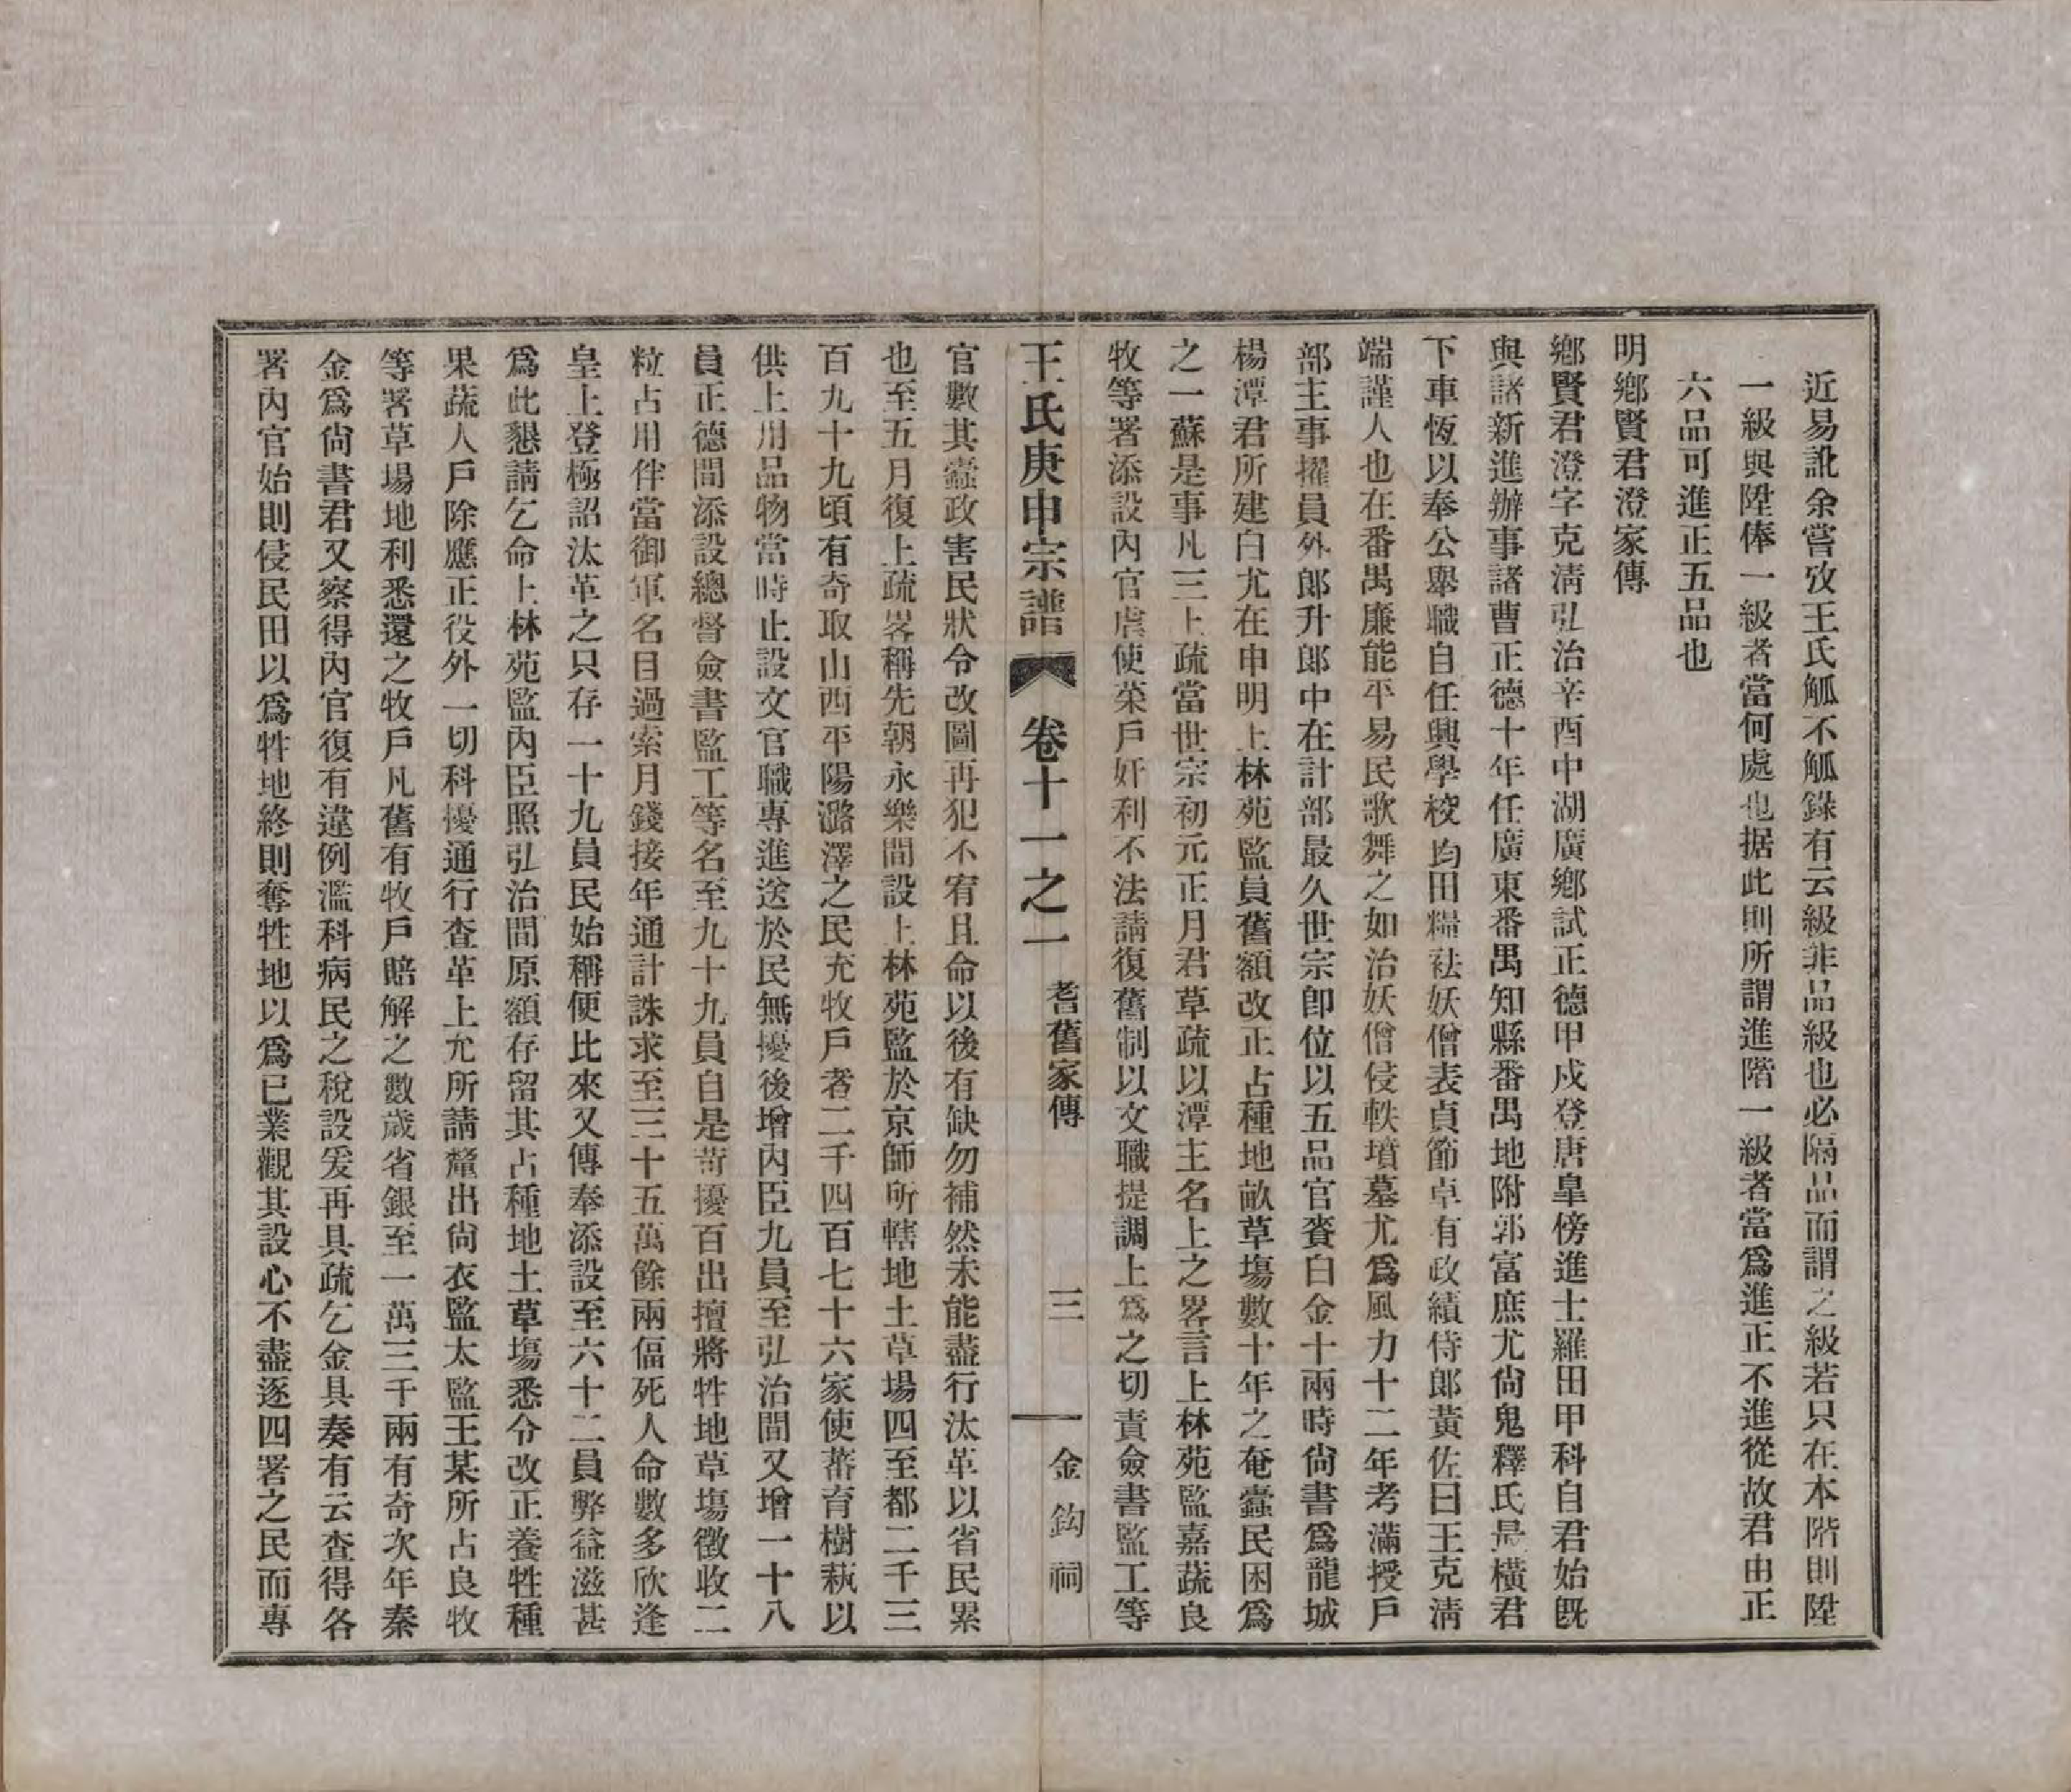 近易訛余嘗攷王氏觚不觚錄有云級非品級也必隔品而謂之級若只在本階則陞
一級與陞俸一級者當何處也据此則所謂進階一級者當爲進正不進從故君由正
六品可進正五品也
明鄉賢君澄家傳
鄉賢君澄字克淸弘治辛酉中湖廣鄉試正德甲戍登唐皐傍進士羅田甲科自君始旣
與諸新進辦事諸曹正德十年任廣東番禺知縣番禺地附郭富庶尤尙鬼釋氏最橫君
下車恆以奉公舉職自任興學校均田糧袪妖僧表貞節卓有政績侍郞黃佐曰王克淸
端謹人也在番禺廉能平易民歌舞之如治妖僧侵軼墳墓尤爲風力十二年考滿授戶
部主事擢員外郞升郞中在計部最久世宗卽位以五品官賚白金十兩時尙書爲龍城
楊潭君所建白尤在申明上林苑監員舊額改正占種地畝草塲數十年之奄蠹民困爲
之一蘇是事凡三上疏當世宗初元正月君草疏以潭主名上之畧言上林苑監嘉蔬良
牧等署添設內官虐使菜戶奸利不法請復舊制以文職提調上爲之切責僉書監工等
王氏庚申宗譜 卷十一之一 耆舊家傳 三 金鈎祠
官數其蠹政害民狀令改圖再犯不宥且命以後有缺勿補然未能盡行汰革以省民累
也至五月復上疏畧稱先朝永樂間設上林苑監於京師所轄地土草場四至都二千三
百九十九頃有奇取山西平陽潞澤之民充牧戶者二千四百七十六家使蕃育樹蓺以
供上用品物當時止設文官職專進送於民無擾後增內臣九員至弘治間又增一十八
員正德間添設總督僉書監工等名至九十九員自是苛擾百出擅將牲地草塲徵收二
粒占用伴當御軍名目過索月錢接年通計誅求至三十五萬餘兩偪死人命數多欣逢
皇上登極詔汰革之只存一十九員民始稱便比來又傳奉添設至六十二員弊益滋甚
爲此懇請乞命上林苑監內臣照弘治間原額存留其占種地土草塲悉令改正養牲種
果蔬人戶除應正役外一切科擾通行查革上允所請釐出尙衣監太監王某所占良牧
等署草場地利悉還之牧戶凡舊有牧戶賠解之數歲省銀至一萬三千兩有奇次年秦
金爲尙書君又察得內官復有違例濫科病民之稅設爰再具疏乞金具奏有云查得各
署內官始則侵民田以爲牲地終則奪牲地以爲已業觀其設心不盡逐四署之民而專